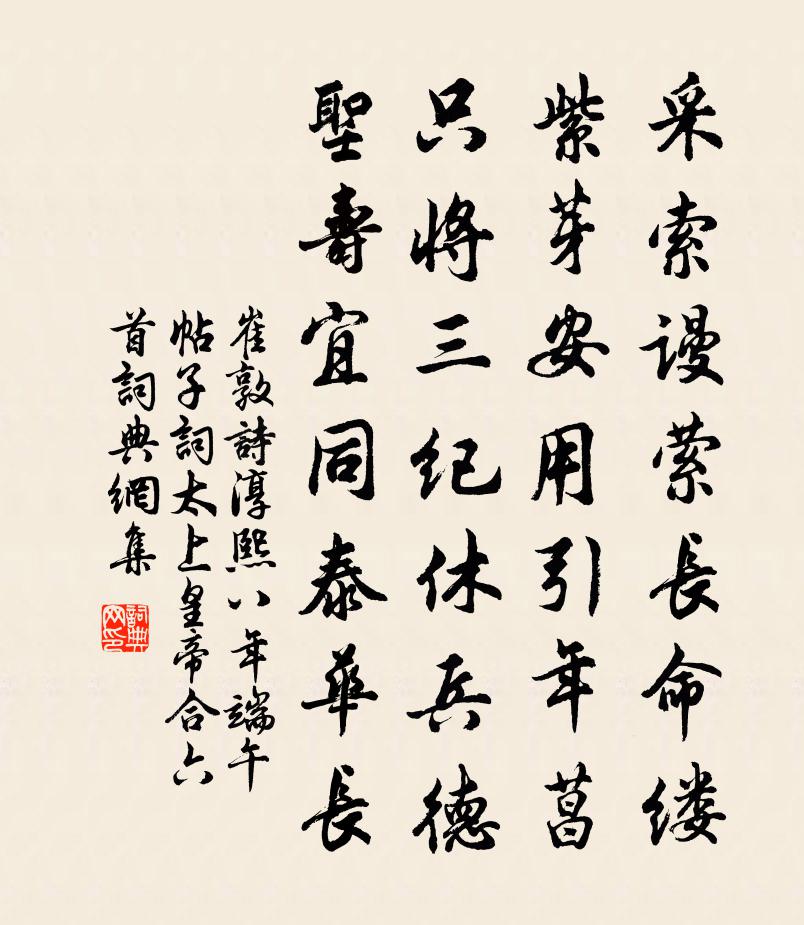 采索谩萦長命缕
紫芽安用引年菖
只将三纪休兵德
聖壽宜同泰華長
崔敦詩淳熙八年端午
帖子詞太上皇帝合六
首詞典網集
詞典网印